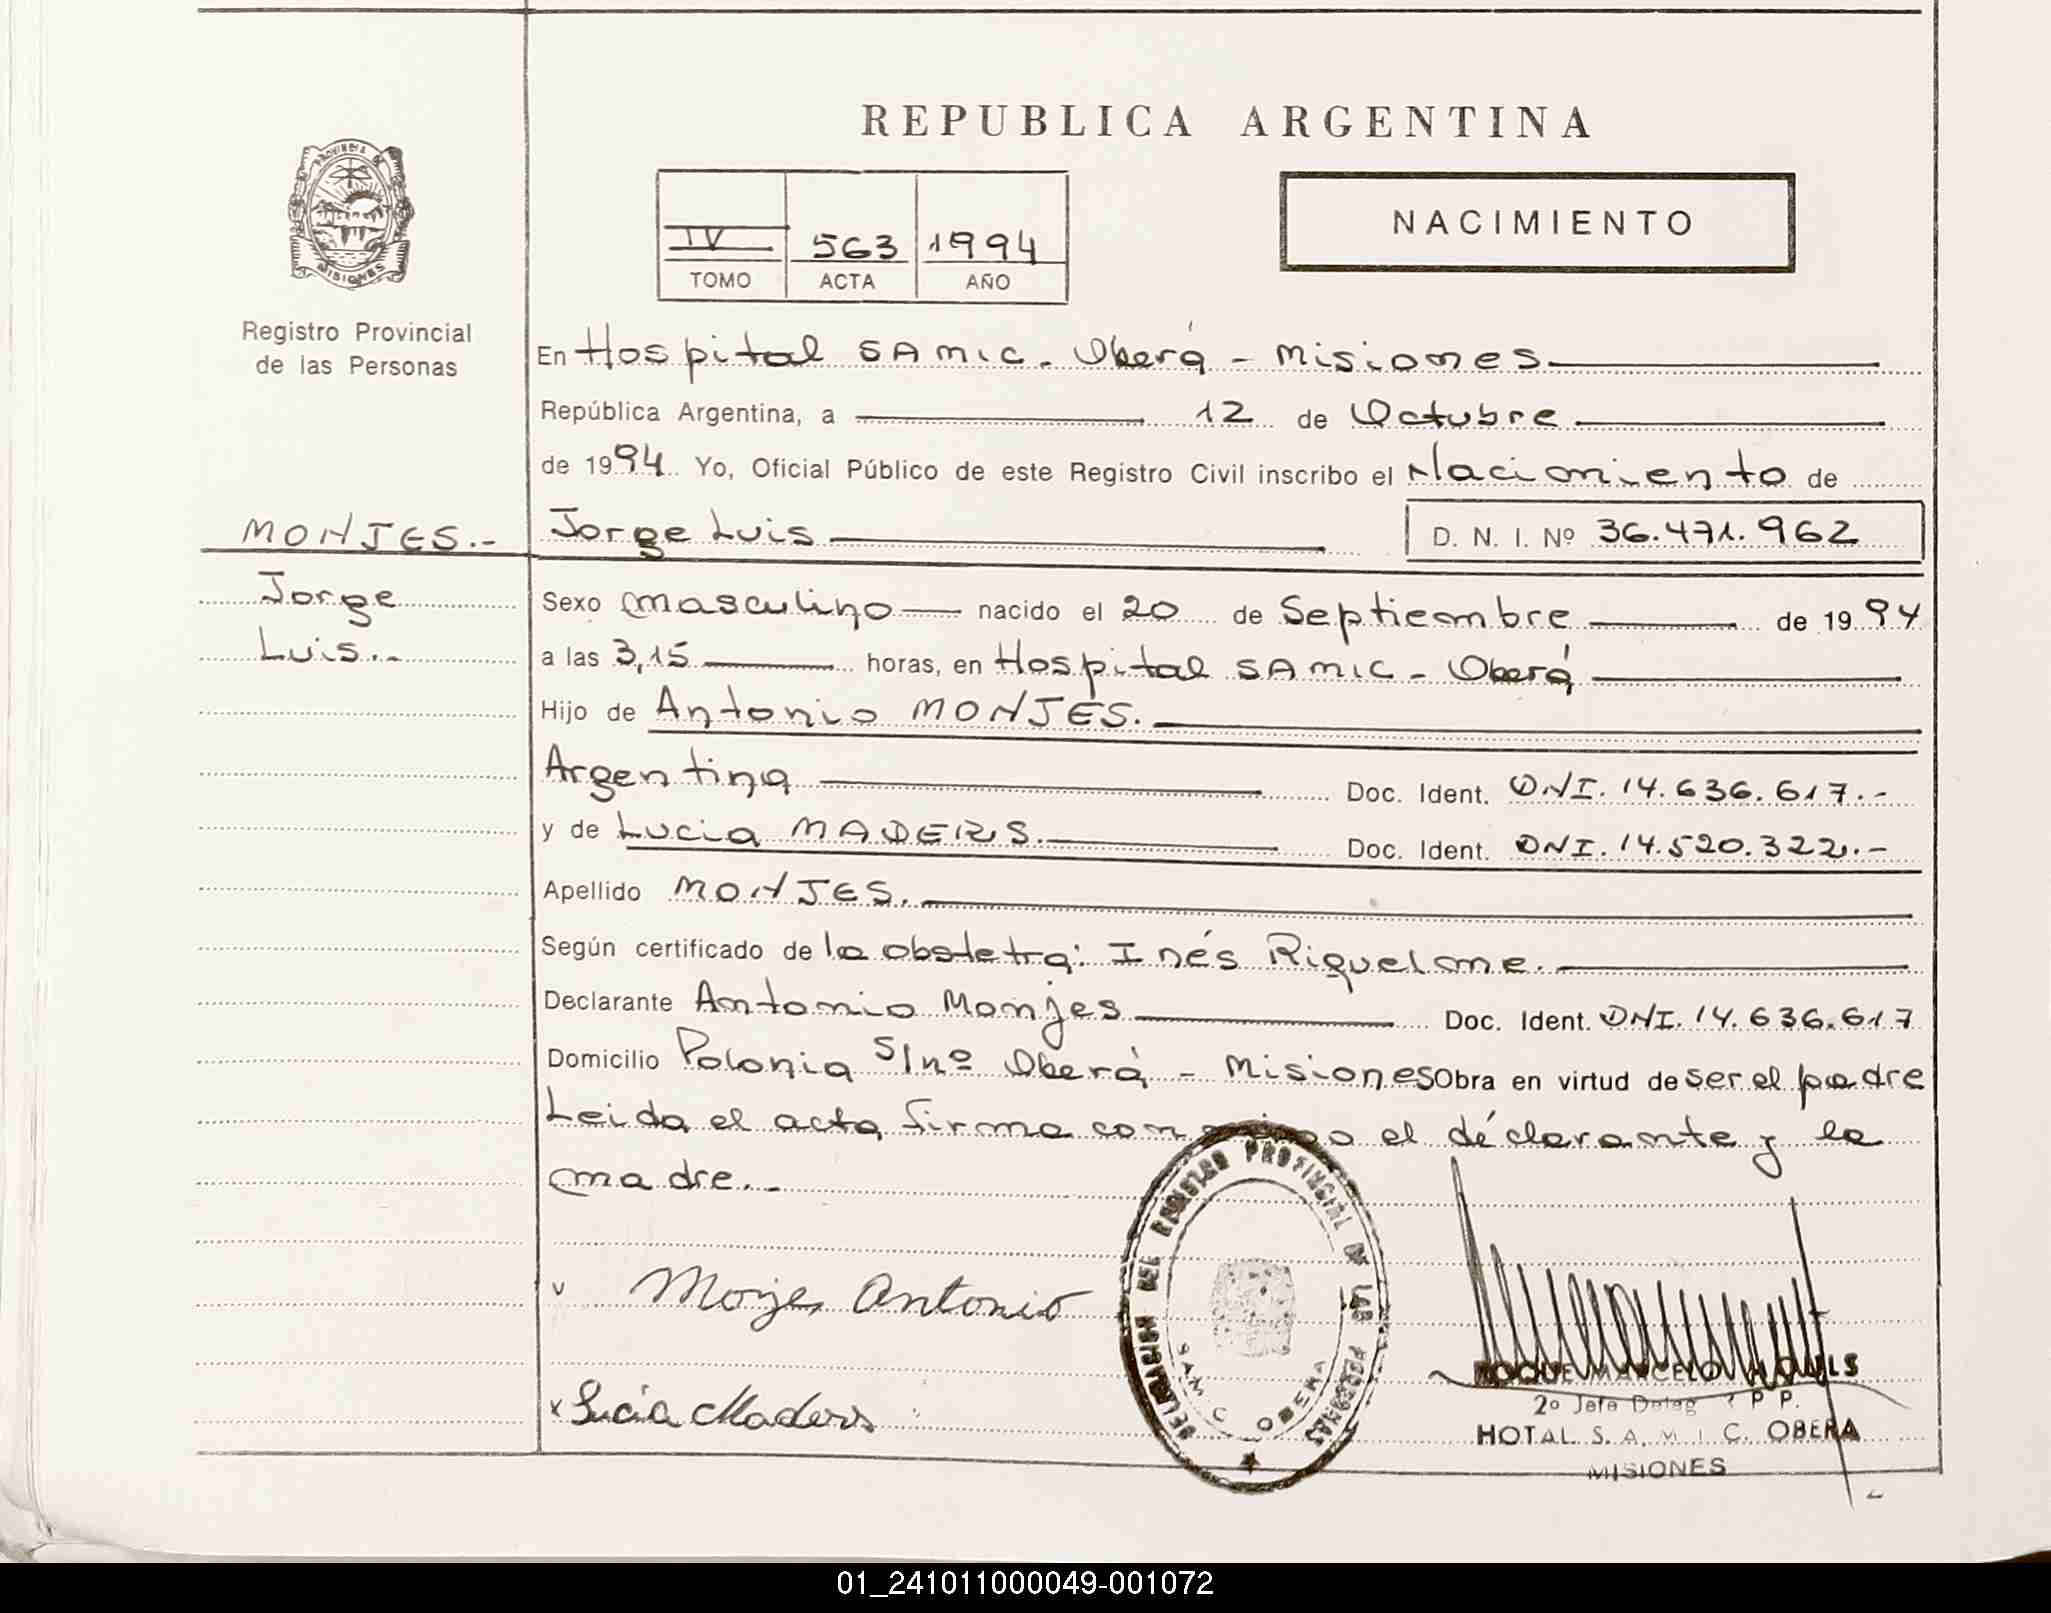 REPUBLICA ARGENTINA
PROVINCIA DE
MISIONES
IV 563 1994
TOMO ACTA AÑO
NACIMIENTO
Registro Provincial
de las Personas
En Hospital SAMIC - Oberá - Misiones
República Argentina, a 12 de Octubre
de 1994 Yo, Oficial Público de este Registro Civil inscribo el Nacimiento de
MONJES.- Jorge Luis D. N. I. Nº 36.471.962
Jorge
Luis.-
Sexo masculino nacido el 20 de Septiembre de 1994
a las 3,15 horas, en Hospital SAMIC - Oberá
Hijo de Antonio MONJES.
Argentina Doc. Ident. DNI. 14.636.617.-
y de Lucia MADERS. Doc. Ident. DNI. 14.520.322.-
Apellido MONJES.
Según certificado de la obstetra: Inés Riquelme.
Declarante Antonio Monjes Doc. Ident. DNI. 14.636.617
Domicilio Polonia S/nº Oberá - Misiones Obra en virtud de ser el padre
Leida el acta firma conmigo el declarante y la
madre.-
v Monjes Antonio
x Lucia Maders
DELEGACION DEL REGISTRO PROVINCIAL DE LAS PERSONAS
SAMIC OBERA
ROQUE MARCELO
2º Jefe Deleg P P.
HOTAL S. A. M I C. OBERA
MISIONES
01_241011000049-001072